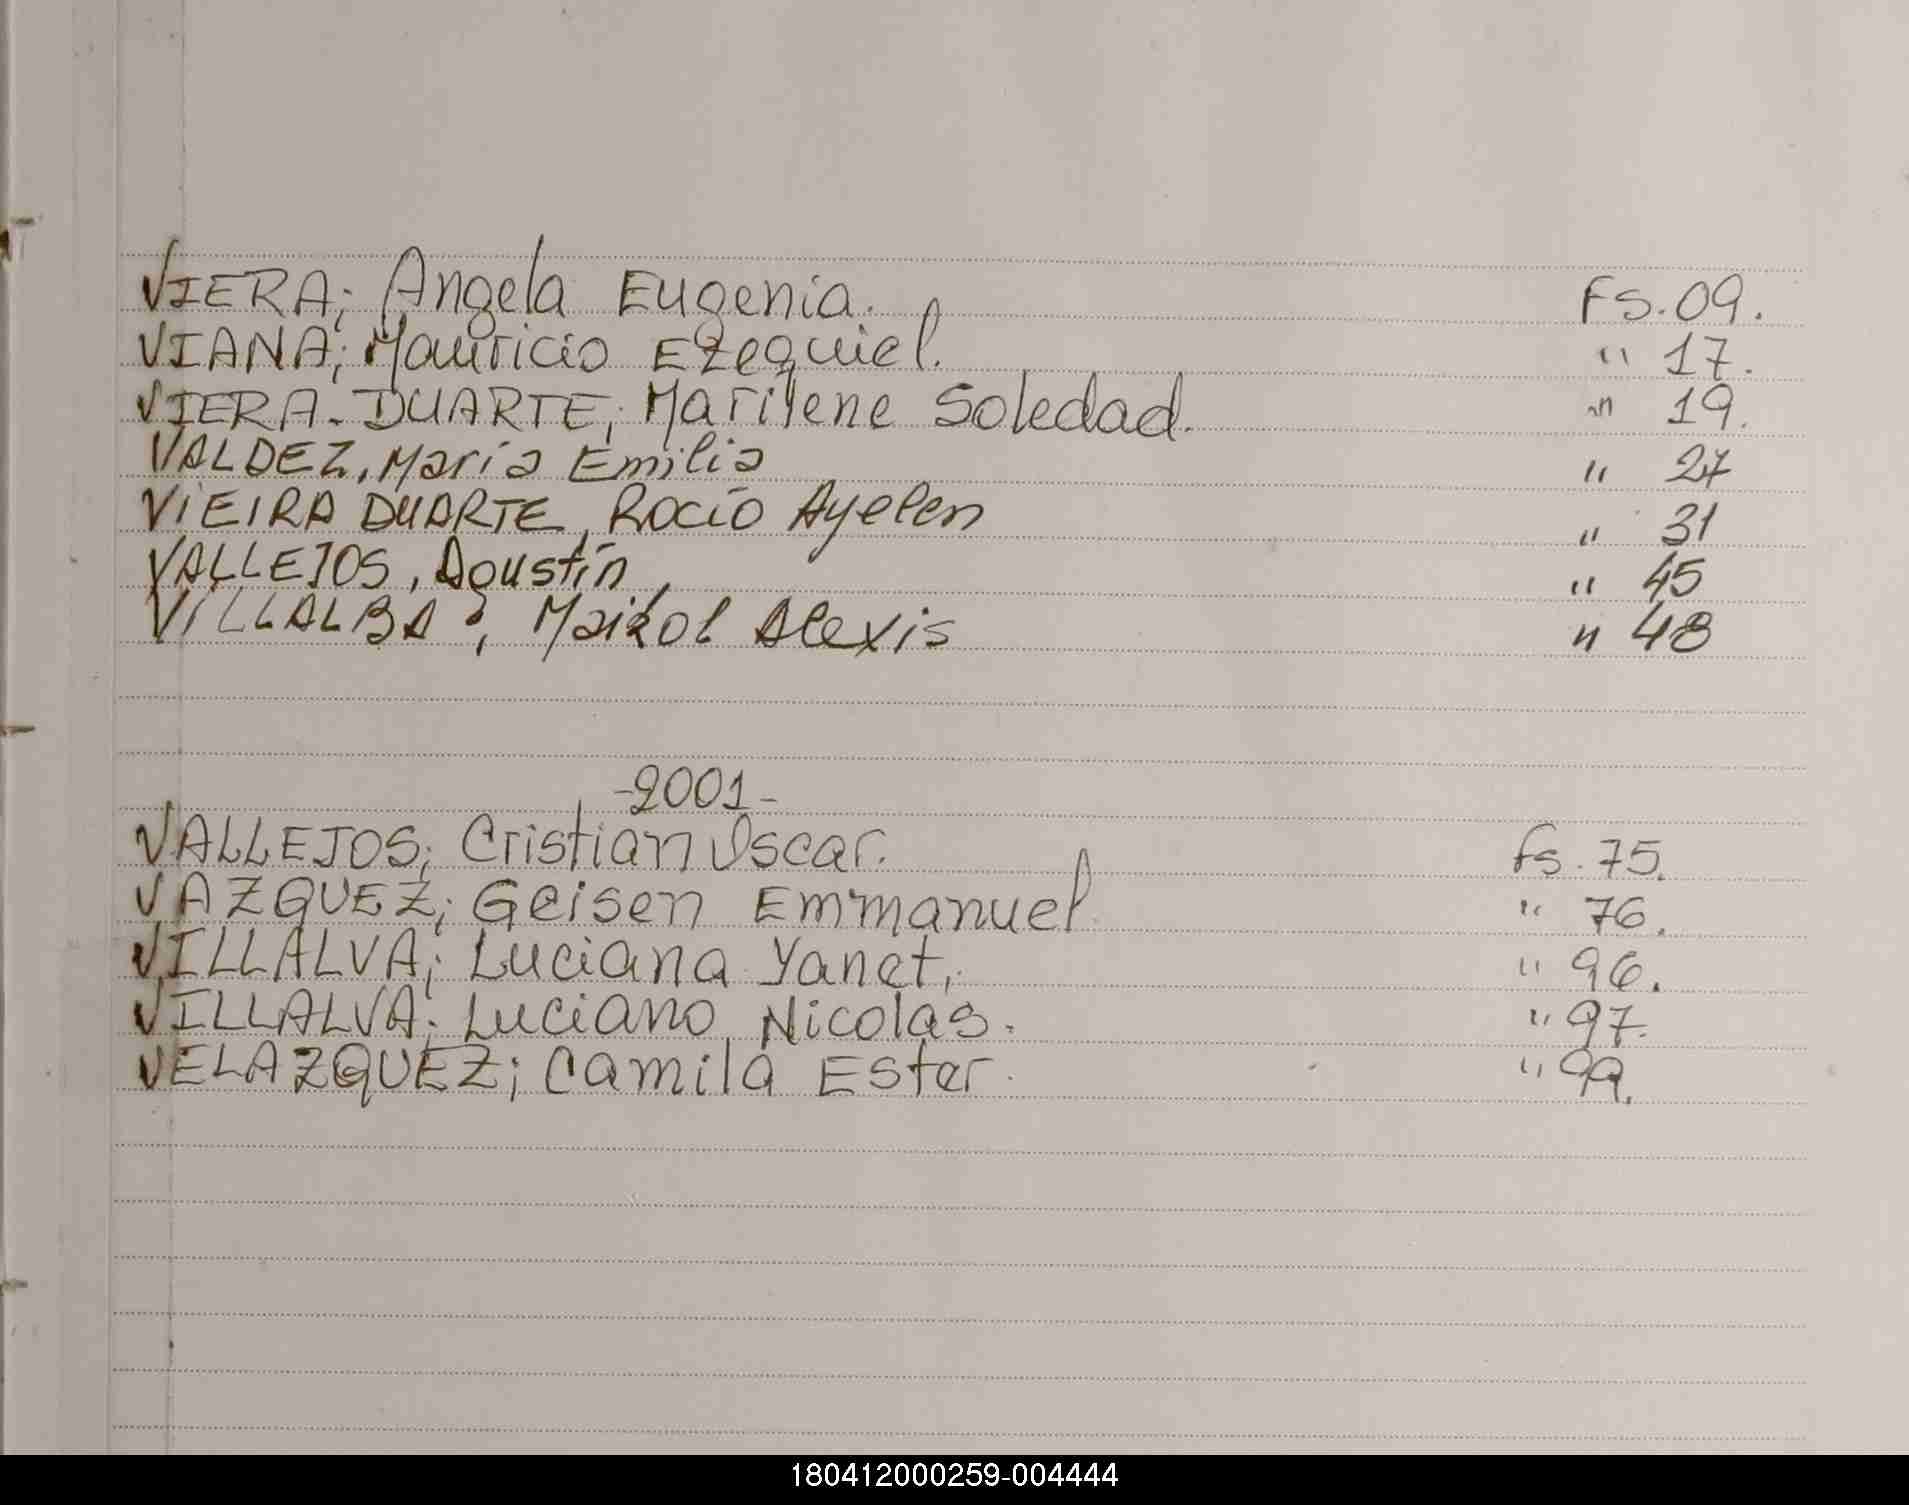 VIERA; Angela Eugenia. Fs. 09.
VIANA; Mauricio Ezequiel. " 17.
VIERA-DUARTE; Marilene Soledad. " 19.
VALDEZ, María Emilia " 27
VIEIRA DUARTE, Rocío Ayelen " 31
VALLEJOS, Agustín " 45
VILLALBA, Maikol Alexis " 48
-2001-
VALLEJOS; Cristian Oscar. fs. 75.
VAZQUEZ; Geisen Emmanuel. " 76.
VILLALVA; Luciana Yanet. " 96.
VILLALVA; Luciano Nicolas. " 97.
VELAZQUEZ; Camila Ester. " 99.
180412000259-004444